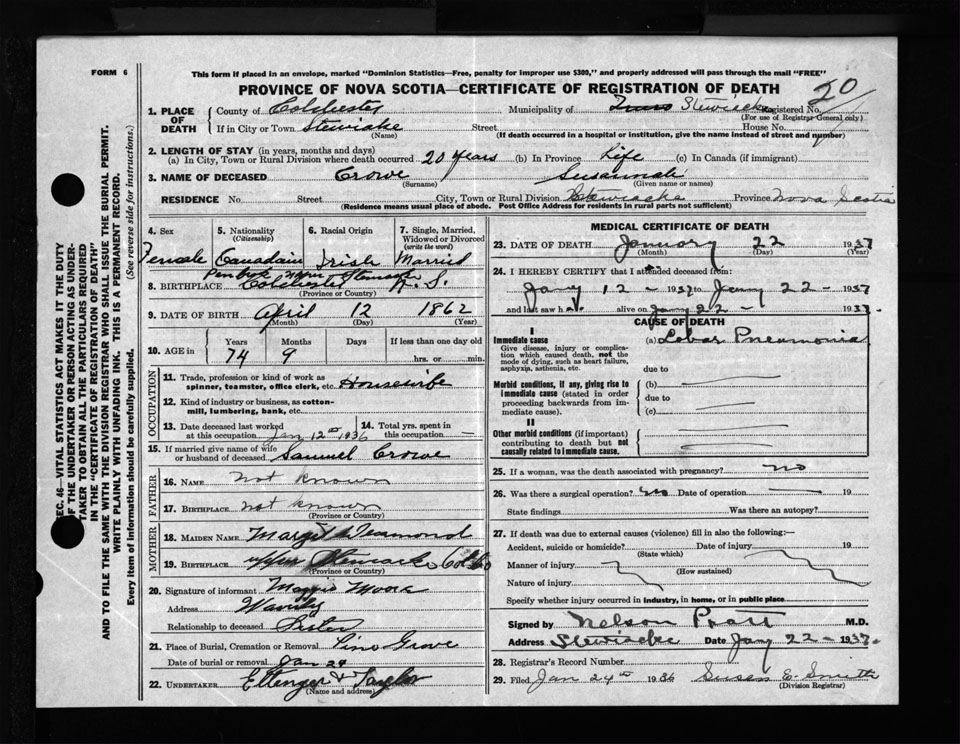 FORM 6
This form if placed in an envelope, marked "Dominion Statistics—Free, penalty for improper use $300," and properly addressed will pass through the mail "FREE"
PROVINCE OF NOVA SCOTIA—CERTIFICATE OF REGISTRATION OF DEATH
20
1. PLACE OF DEATH
County of Colchester Municipality of Truro Stewiacke Registered No.
(For use of Registrar General only)
If in City or Town Stewiacke Street House No.
(Name) (If death occurred in a hospital or institution, give the name instead of street and number)
2. LENGTH OF STAY (in years, months and days)
(a) In City, Town or Rural Division where death occurred 20 Years (b) In Province Life (c) In Canada (if immigrant)
3. NAME OF DECEASED Crowe Susannah
(Surname) (Given name or names)
RESIDENCE No. Street City, Town or Rural Division Stewiacke Province Nova Scotia
(Residence means usual place of abode. Post Office Address for residents in rural parts not sufficient)
4. Sex 5. Nationality (Citizenship) 6. Racial Origin 7. Single, Married, Widowed or Divorced (write the word)
Female Canadain Irish Married
8. BIRTHPLACE Colchester N. S.
(Province or Country)
9. DATE OF BIRTH April 12 1862
(Month) (Day) (Year)
10. AGE in Years Months Days If less than one day old
74 9 hrs. or min.
OCCUPATION
11. Trade, profession or kind of work as spinner, teamster, office clerk, etc. Housewife
12. Kind of industry or business, as cotton-mill, lumbering, bank, etc.
13. Date deceased last worked at this occupation Jan 12th 1936
14. Total yrs. spent in this occupation —
15. If married give name of wife or husband of deceased Samuel Crowe
FATHER
16. NAME Not Known
17. BIRTHPLACE Not Known
(Province or Country)
MOTHER
18. MAIDEN NAME
19. BIRTHPLACE Upper Stewiacke Col Co
(Province or Country)
20. Signature of informant Maggie Moore
Address
Relationship to deceased Sister
21. Place of Burial, Cremation or Removal Pine Grove
Date of burial or removal Jan 24
22. UNDERTAKER Ettenger & Taylor
(Name and address)
MEDICAL CERTIFICATE OF DEATH
23. DATE OF DEATH January 22 1937
(Month) (Day) (Year)
24. I HEREBY CERTIFY that I attended deceased from:
Jany 12 – 1937 to Jany 22 – 1937
and last saw her alive on Jany 22 – 1937.
CAUSE OF DEATH
I
Immediate cause (a) Lobar Pneumonia
Give disease, injury or complication which caused death, not the mode of dying, such as heart failure, asphyxia, asthenia, etc.
due to
Morbid conditions, if any, giving rise to immediate cause (stated in order proceeding backwards from immediate cause).
(b)
due to
(c)
II
Other morbid conditions (if important) contributing to death but not causally related to immediate cause.
25. If a woman, was the death associated with pregnancy? no
26. Was there a surgical operation? no Date of operation — 19
State findings Was there an autopsy?
27. If death was due to external causes (violence) fill in also the following:—
Accident, suicide or homicide? Date of injury 19
(State which)
Manner of injury
(How sustained)
Nature of injury
Specify whether injury occurred in industry, in home, or in public place
Signed by Nelson Pratt M.D.
Address Stewiacke Date Jany 22 – 1937.
28. Registrar's Record Number
29. Filed Jan 24th 1936 Susan E. Smith
(Division Registrar)
SEC. 46—VITAL STATISTICS ACT MAKES IT THE DUTY
OF THE UNDERTAKER OR PERSON ACTING AS UNDERTAKER TO OBTAIN ALL THE PARTICULARS REQUIRED
IN THE "CERTIFICATE OF REGISTRATION OF DEATH"
AND TO FILE THE SAME WITH THE DIVISION REGISTRAR WHO SHALL ISSUE THE BURIAL PERMIT.
WRITE PLAINLY WITH UNFADING INK. THIS IS A PERMANENT RECORD.
Every item of information should be carefully supplied. (See reverse side for instructions.)